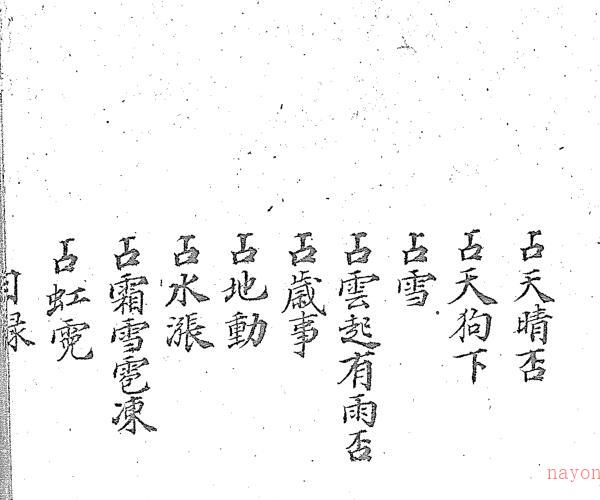 占天晴否
占天狗下
占雪
占雲起有雨否
占歲事
占地動
占水漲
占霜雪雹凍
占虹霓
目録
nayon